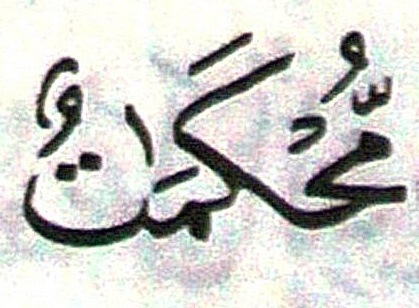 مُّحْكَمَٰتٌ